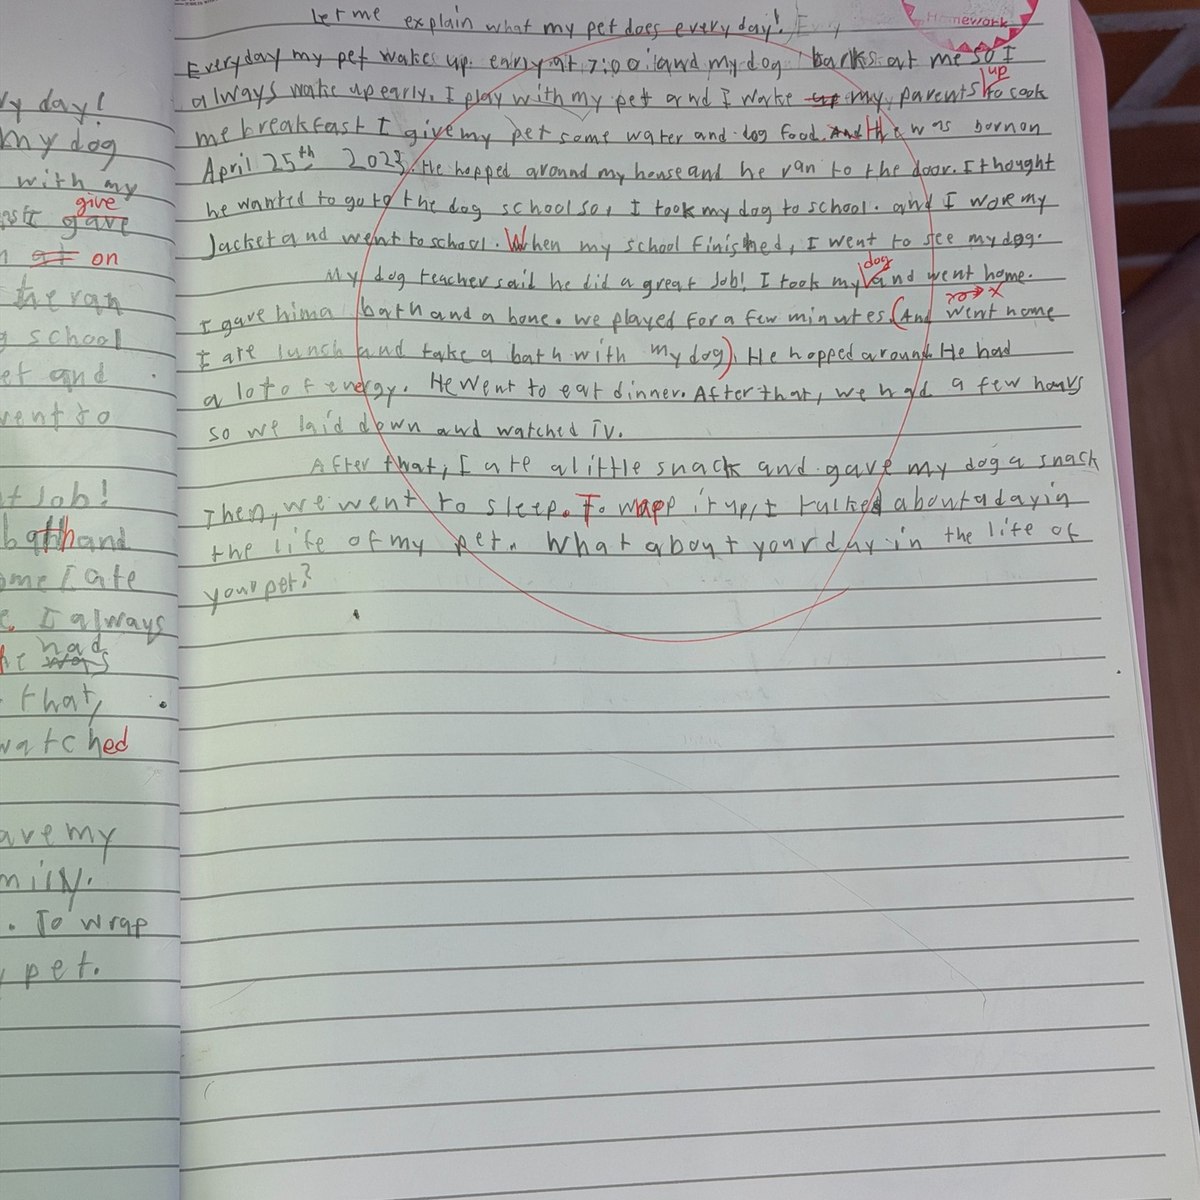 Homework
Let me explain what my pet does every day!
Everyday my pet wakes up early at 7:00 and my dog barks at me so I
up
always wake up early. I play with my pet and I wake up my parents to cook
me breakfast I give my pet some water and dog food. And He was born on
April 25th 2023. He hopped around my house and he ran to the door. I thought
he wanted to go to the dog school so, I took my dog to school. and I wore my
Jacket and went to school. When my school finished, I went to see my dog.
dog
My dog teacher said he did a great Job! I took my and went home.
I gave him a bath and a bone. we played for a few minutes. (And went home
I ate lunch and take a bath with my dog). He hopped around. He had
a lot of energy. He went to eat dinner. After that, we had a few hours
so we laid down and watched TV.
After that, I ate a little snack and gave my dog a snack
Then, we went to sleep. To wrapp it up, I talked about a day in
the life of my pet. What about your day in the life of
your pet?
y day!
my dog
with my
give
gave
at on
he ran
school
et and
went to
t Job!
bath and
ome I ate
I always
had
was
that,
watched
ave my
mily.
. To wrap
y pet.